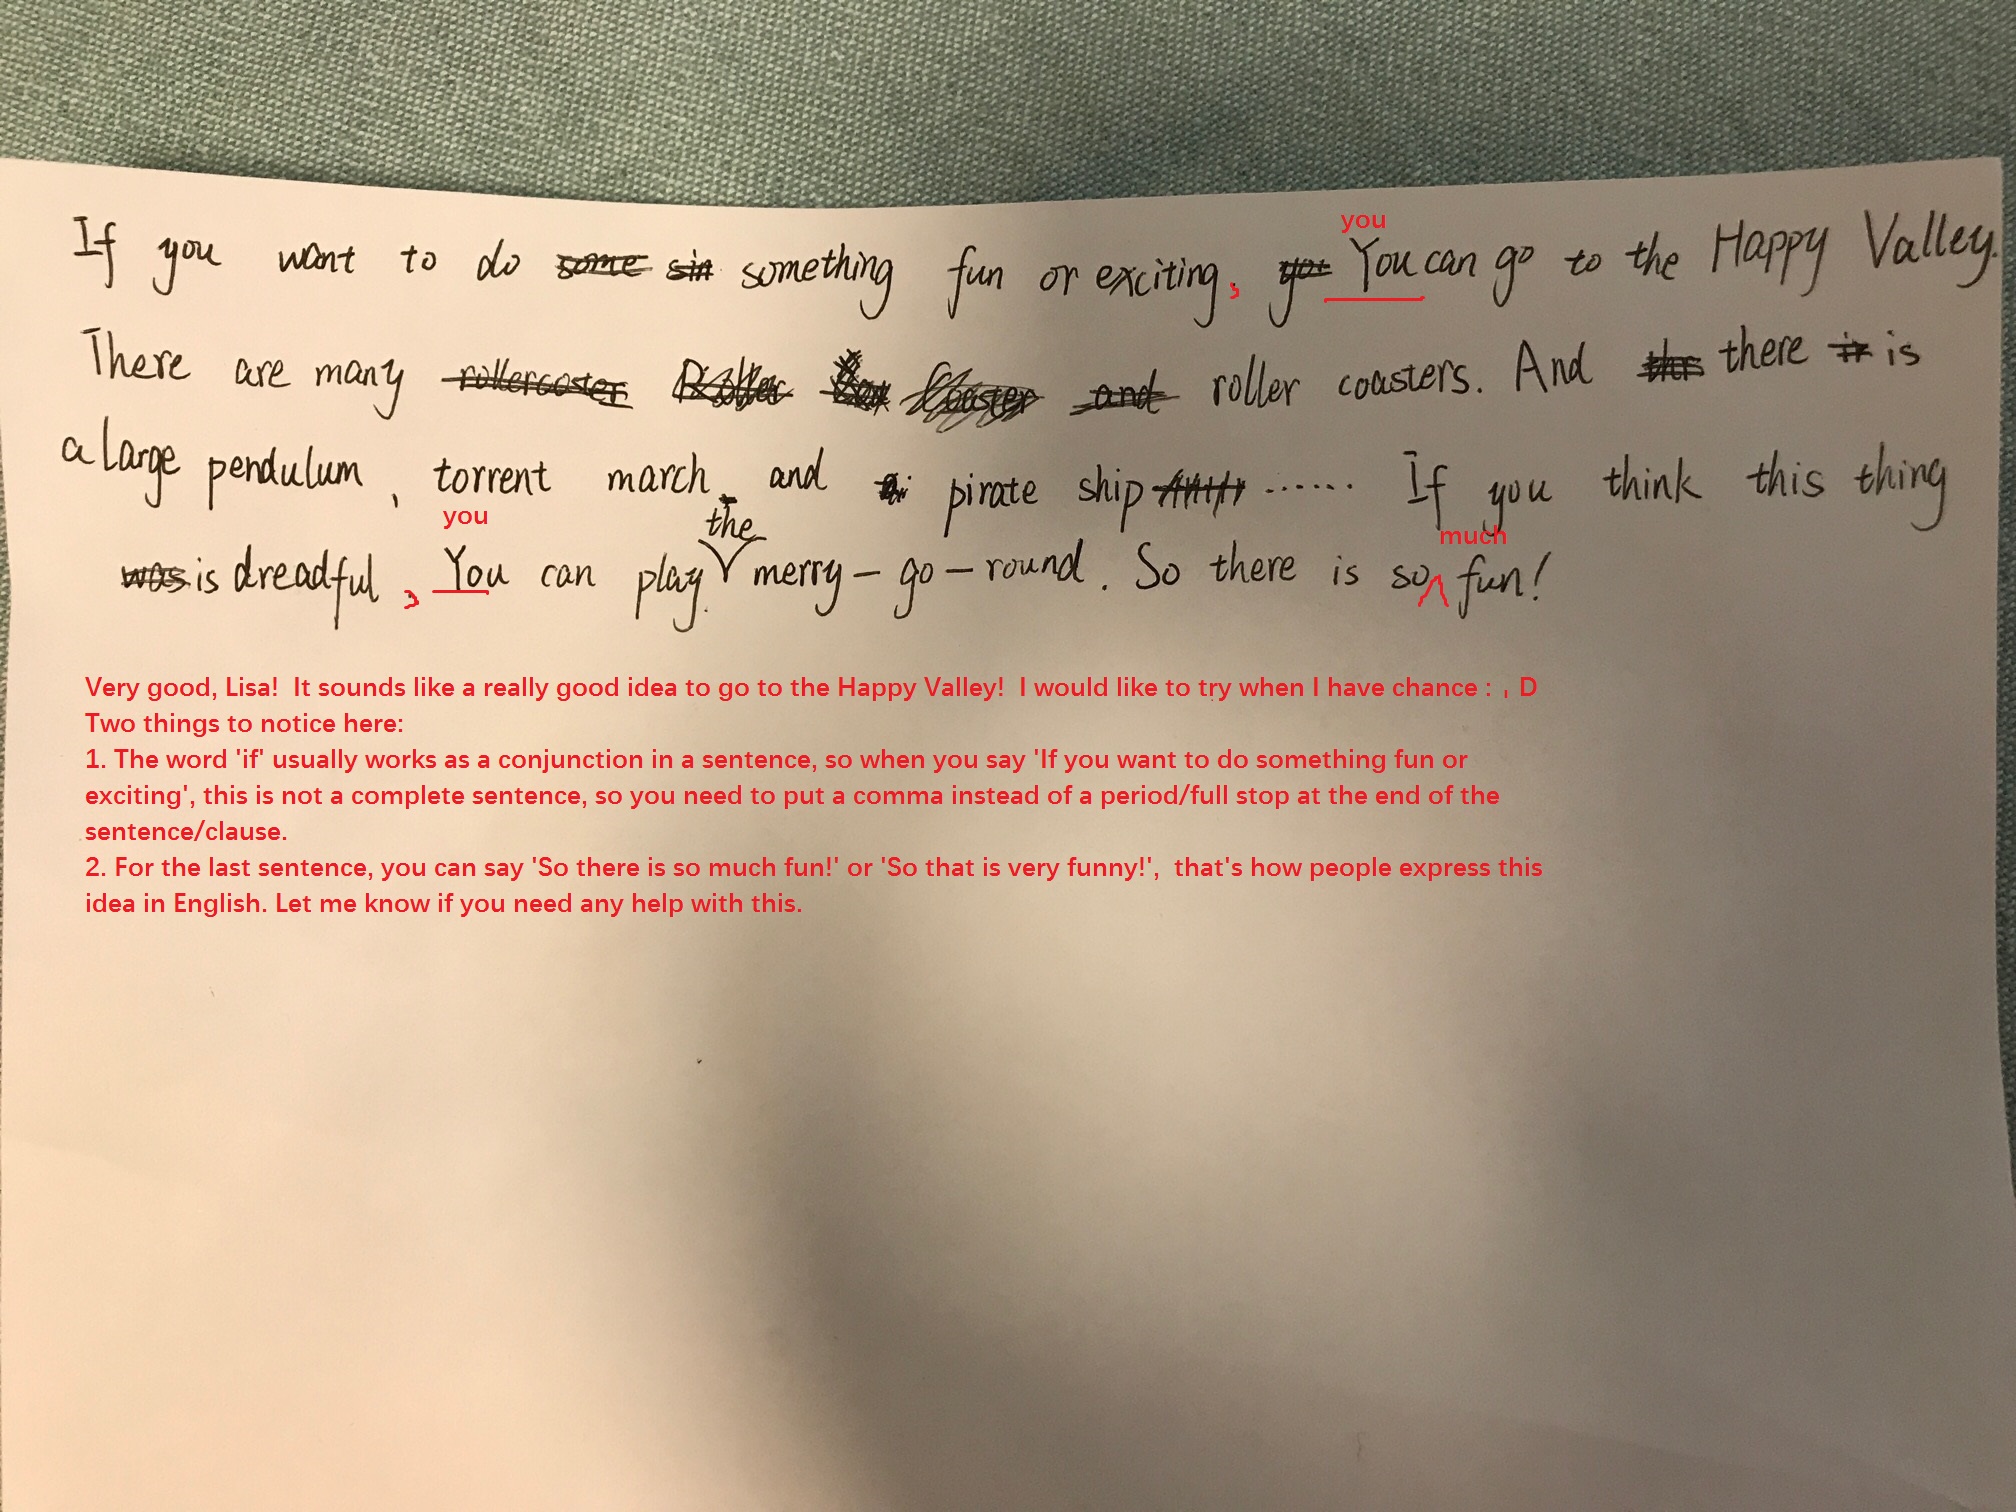 you
If you want to do some sin something fun or exciting, you You can go to the Happy Valley.
There are many rollercoster Roller Coaster and roller coasters. And there is
a large pendulum, torrent march and pirate ship ...... If you think this thing
you the much
was is dreadful, You can play merry-go-round. So there is so fun!
Very good, Lisa! It sounds like a really good idea to go to the Happy Valley! I would like to try when I have chance : , D
Two things to notice here:
1. The word 'if' usually works as a conjunction in a sentence, so when you say 'If you want to do something fun or
exciting', this is not a complete sentence, so you need to put a comma instead of a period/full stop at the end of the
sentence/clause.
2. For the last sentence, you can say 'So there is so much fun!' or 'So that is very funny!', that's how people express this
idea in English. Let me know if you need any help with this.